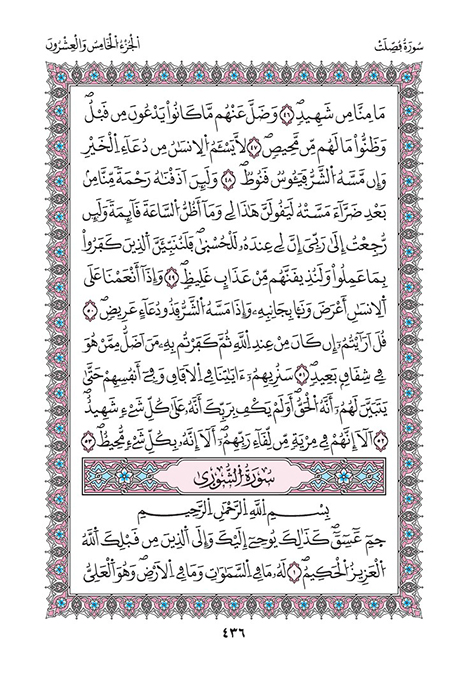 سُورَةُ فُصِّلَتْ
الجُزْءُ الْخَامِسُ وَالْعِشْرُونَ
مَا مِنَّا مِن شَهِيدٖۖ ٤٦ وَضَلَّ عَنْهُم مَّا كَانُواْ يَدْعُونَ مِن قَبْلُۖ
وَظَنُّواْ مَا لَهُم مِّن مَّحِيصٖۖ ٤٧ لَّا يَسْـَٔمُ اُلْإِنسَٰنُ مِن دُعَآءِ اِلْخَيْرِ
وَإِن مَّسَّهُ اُلشَّرُّ فَيَـُٔوسٞ قَنُوطٞۖ ٤٨ وَلَئِنَ اَذَقْنَٰهُ رَحْمَةٗ مِّنَّا مِنۢ
بَعْدِ ضَرَّآءَ مَسَّتْهُ لَيَقُولَنَّ هَٰذَا لِے وَمَآ أَظُنُّ اُلسَّاعَةَ قَآئِمَةٗ وَلَئِن
رُّجِعْتُ إِلَىٰ رَبِّيَ إِنَّ لِے عِندَهُۥ لَلْحُسْنَىٰۖ فَلَنُنَبِّئَنَّ اَلذِينَ كَفَرُواْ
بِمَا عَمِلُواْ وَلَنُذِيقَنَّهُم مِّنْ عَذَابٍ غَلِيظٖۖ ٤٩ وَإِذَآ أَنْعَمْنَا عَلَى
اَلْإِنسَٰنِ أَعْرَضَ وَنَـَٔا بِجَانِبِهِۦ وَإِذَا مَسَّهُ اُلشَّرُّ فَذُو دُعَآءٍ عَرِيضٖۖ ٥٠
قُلَ اَرَٰٓيْتُمُۥٓ إِن كَانَ مِنْ عِندِ اِللَّهِ ثُمَّ كَفَرْتُم بِهِۦ مَنَ اَضَلُّ مِمَّنْ هُوَ
فِے شِقَاقِۢ بَعِيدٖۖ ٥١ سَنُرِيهِمُۥٓ ءَايَٰتِنَا فِے اِلْأٓفَاقِ وَفِےٓ أَنفُسِهِمْ حَتَّىٰ
يَتَبَيَّنَ لَهُمُۥٓ أَنَّهُ اُلْحَقُّۖ أَوَلَمْ يَكْفِ بِرَبِّكَ أَنَّهُۥ عَلَىٰ كُلِّ شَےْءٖ شَهِيدٌۖ
٥٢ اَلَآ إِنَّهُمْ فِے مِرْيَةٖ مِّن لِّقَآءِ رَبِّهِمُۥٓۖ أَلَآ إِنَّهُۥ بِكُلِّ شَےْءٖ مُّحِيطٞۖ ٥٣
سُورَةُ الشُّورَىٰ
بِسْمِ اِللَّهِ اِلرَّحْمَٰنِ اِلرَّحِيمِ
حمِٓ عٓسٓقٓۖ كَذَٰلِكَ يُوحِےٓ إِلَيْكَ وَإِلَى اَلذِينَ مِن قَبْلِكَ اَللَّهُ
اُلْعَزِيزُ اُلْحَكِيمُۖ ١ لَهُۥ مَا فِے اِلسَّمَٰوَٰتِ وَمَا فِے اِلْأَرْضِۖ وَهُوَ اَلْعَلِيُّ
٤٣٦